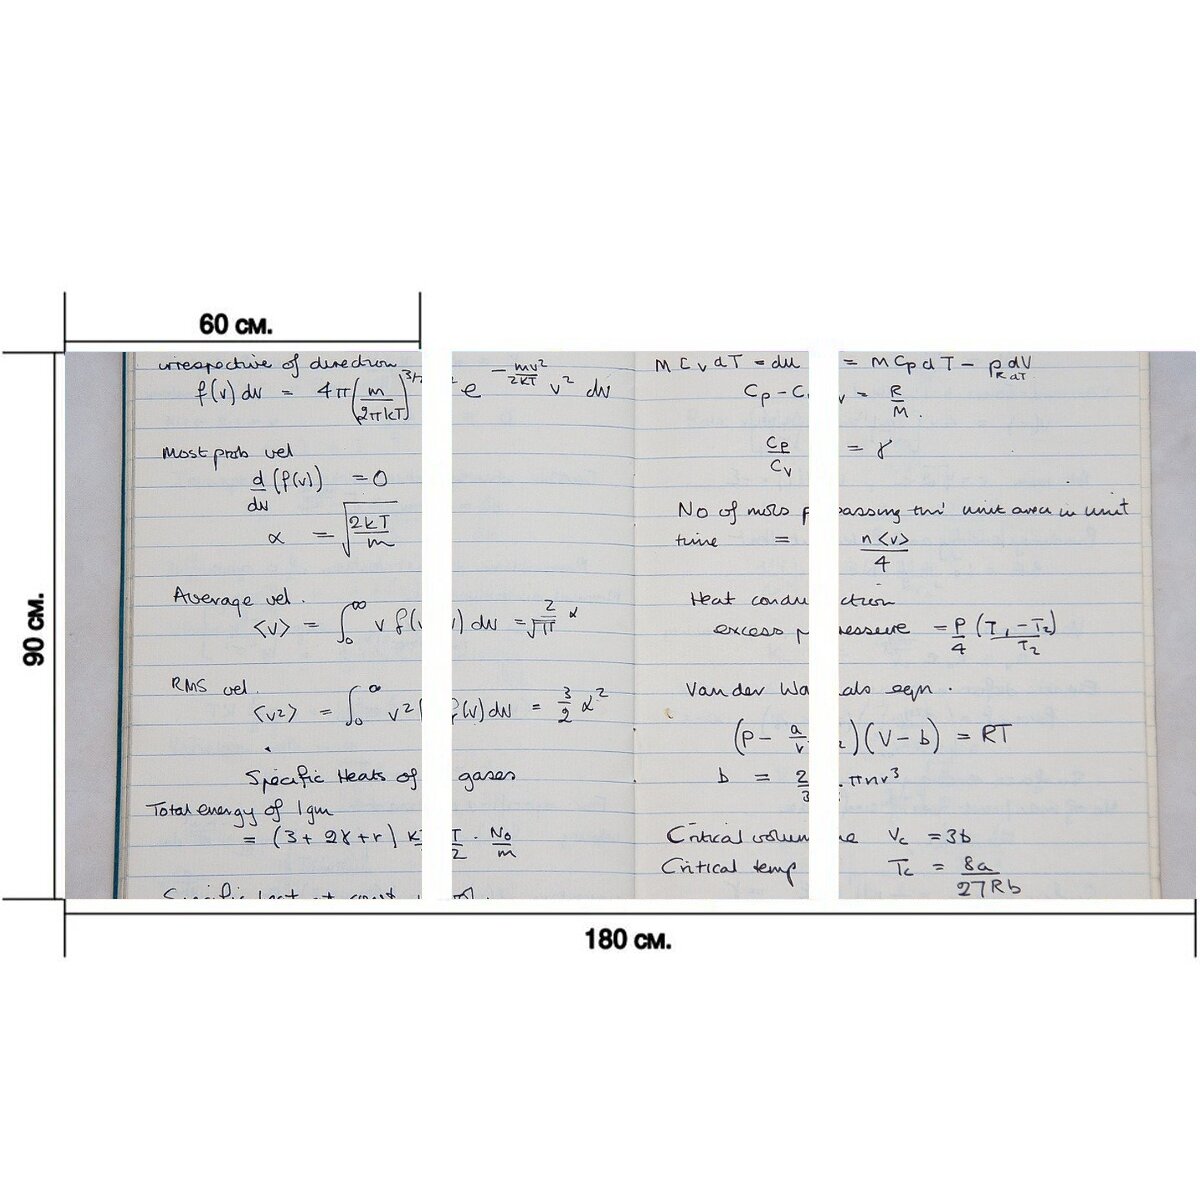 60 см.
90 см.
irrespective of direction
f(v) dv = 4π(m/2πkT)^3/2 e^-mv²/2kT v² dv
Most prob vel
d/dv (f(v)) = 0
α = √2kT/m
Average vel.
<v> = ∫₀^∞ v f(v) dv = 2/√π α
RMS vel.
<v²> = ∫₀^∞ v² f(v) dv = 3/2 α²
Specific Heats of gases
Total energy of 1gm
= (3 + 2γ + r) kT/2 · No/m
MCvdT = du = MCpdT - pdV
RdT
Cp - Cv = R/M.
Cp/Cv = γ
No of mols passing thro' unit area in unit
time = n<v>/4
Heat conduction
excess pressure = P/4 (T₁ - T₂)/T₂
Van der Waals eqn.
(P - a/v²)(V - b) = RT
b = 2/3 πnr³
Critical volume Vc = 3b
Critical temp Tc = 8a/27Rb
180 см.